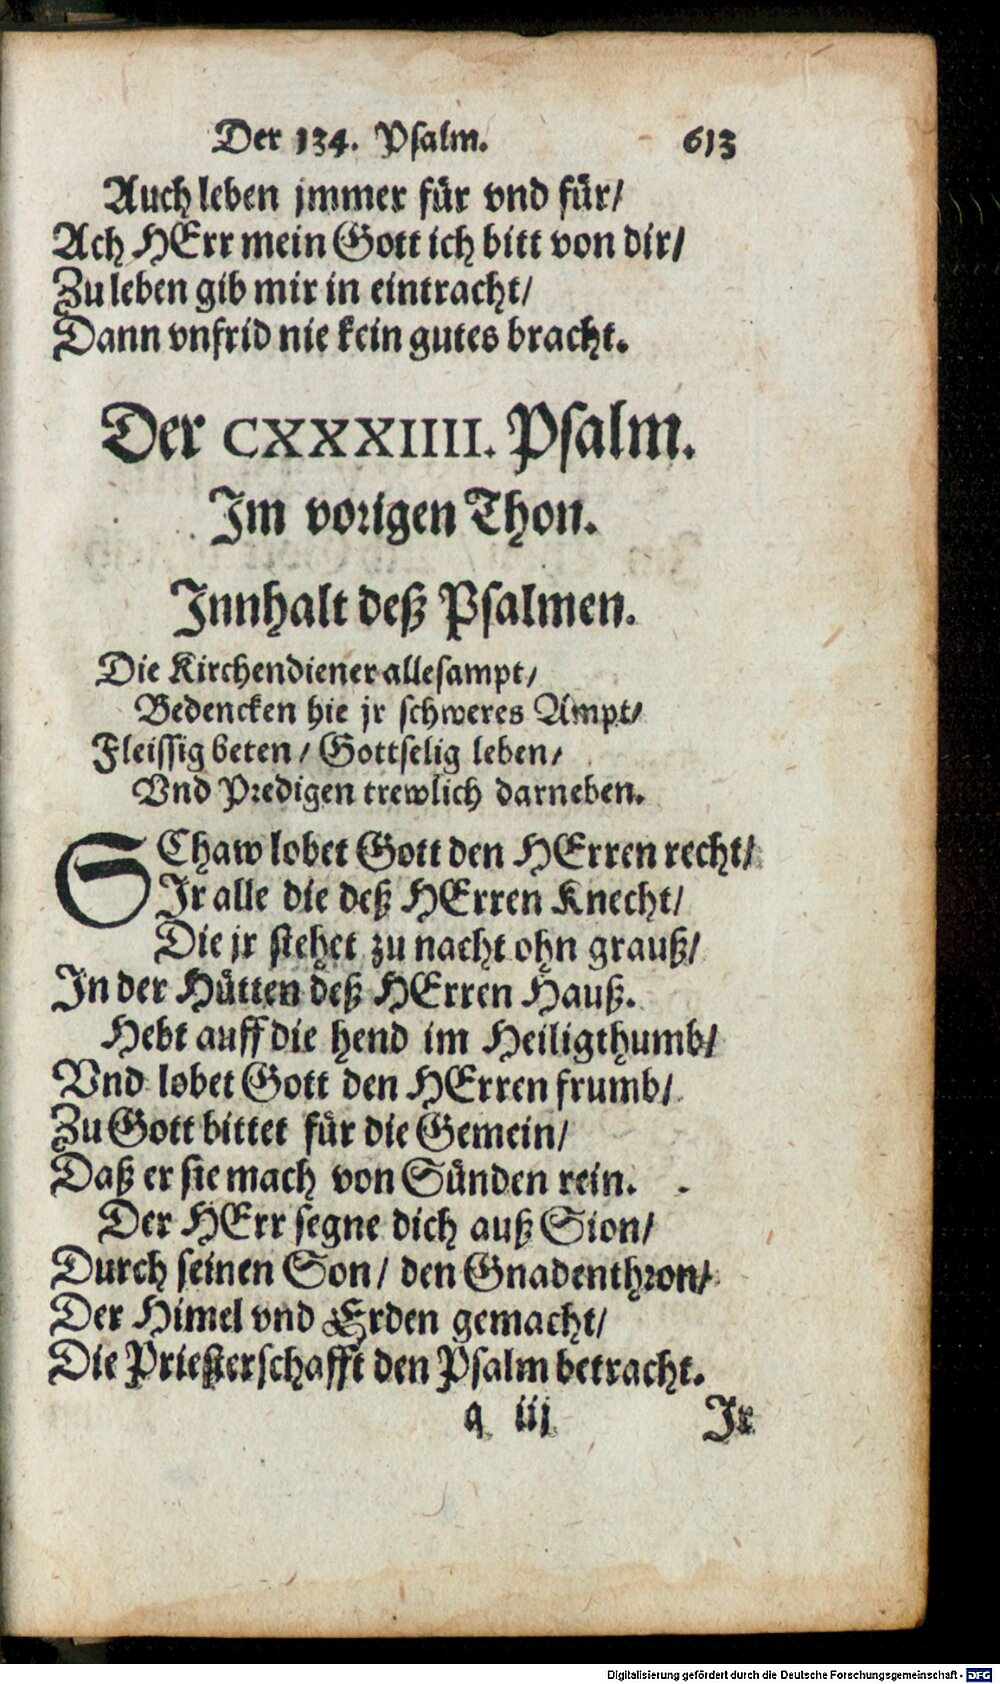 Der 134. Psalm. 613
Auch leben jmmer für vnd für/
Ach HErr mein Gott ich bitt von dir/
Zu leben gib mir in eintracht/
Dann vnfrid nie kein gutes bracht.
Der CXXXIIII. Psalm.
Im vorigen Thon.
Innhalt deß Psalmen.
Die Kirchendiener allesampt/
Bedencken hie jr schweres Ampt/
Fleissig beten / Gottselig leben/
Vnd Predigen trewlich darneben.
SChaw lobet Gott den HErren recht/
Ir alle die deß HErren Knecht/
Die jr stehet zu nacht ohn grauß/
In der Hütten deß HErren Hauß.
Hebt auff die hend im Heiligthumb/
Vnd lobet Gott den HErren frumb/
Zu Gott bittet für die Gemein/
Daß er sie mach von Sünden rein.
Der HErr segne dich auß Sion/
Durch seinen Son / den Gnadenthron/
Der Himel vnd Erden gemacht/
Die Priesterschafft den Psalm betracht.
q iij Ir
Digitalisierung gefördert durch die Deutsche Forschungsgemeinschaft - DFG